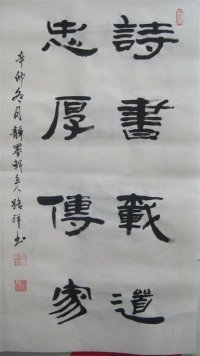 詩書載道
忠厚傳家
辛卯冬月靜墨軒主人路祥書